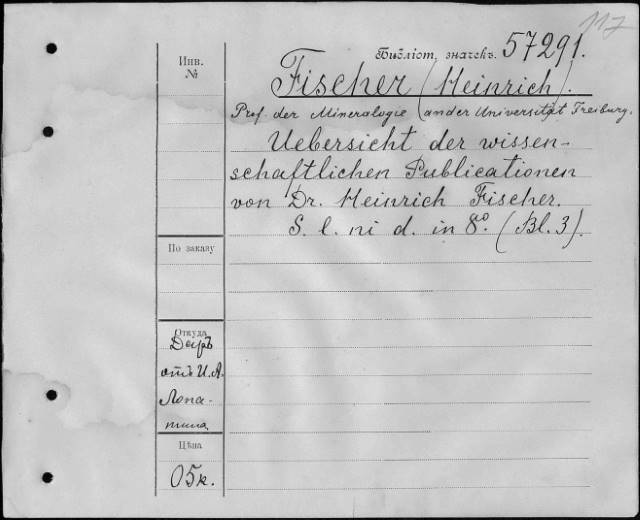 117
Инв.
№
Библіот. значекъ. 57291.
Fischer (Heinrich).
Prof. der Mineralogie (an der Universität Freiburg.
Uebersicht der wissen-
schaftlichen Publicationen
von Dr. Heinrich Fischer.
S. l. ni d. in 8º. (Bl. 3).
По заказу
Откуда
Даръ
отъ И. А.
Лопа-
тина
Цѣна
05к.